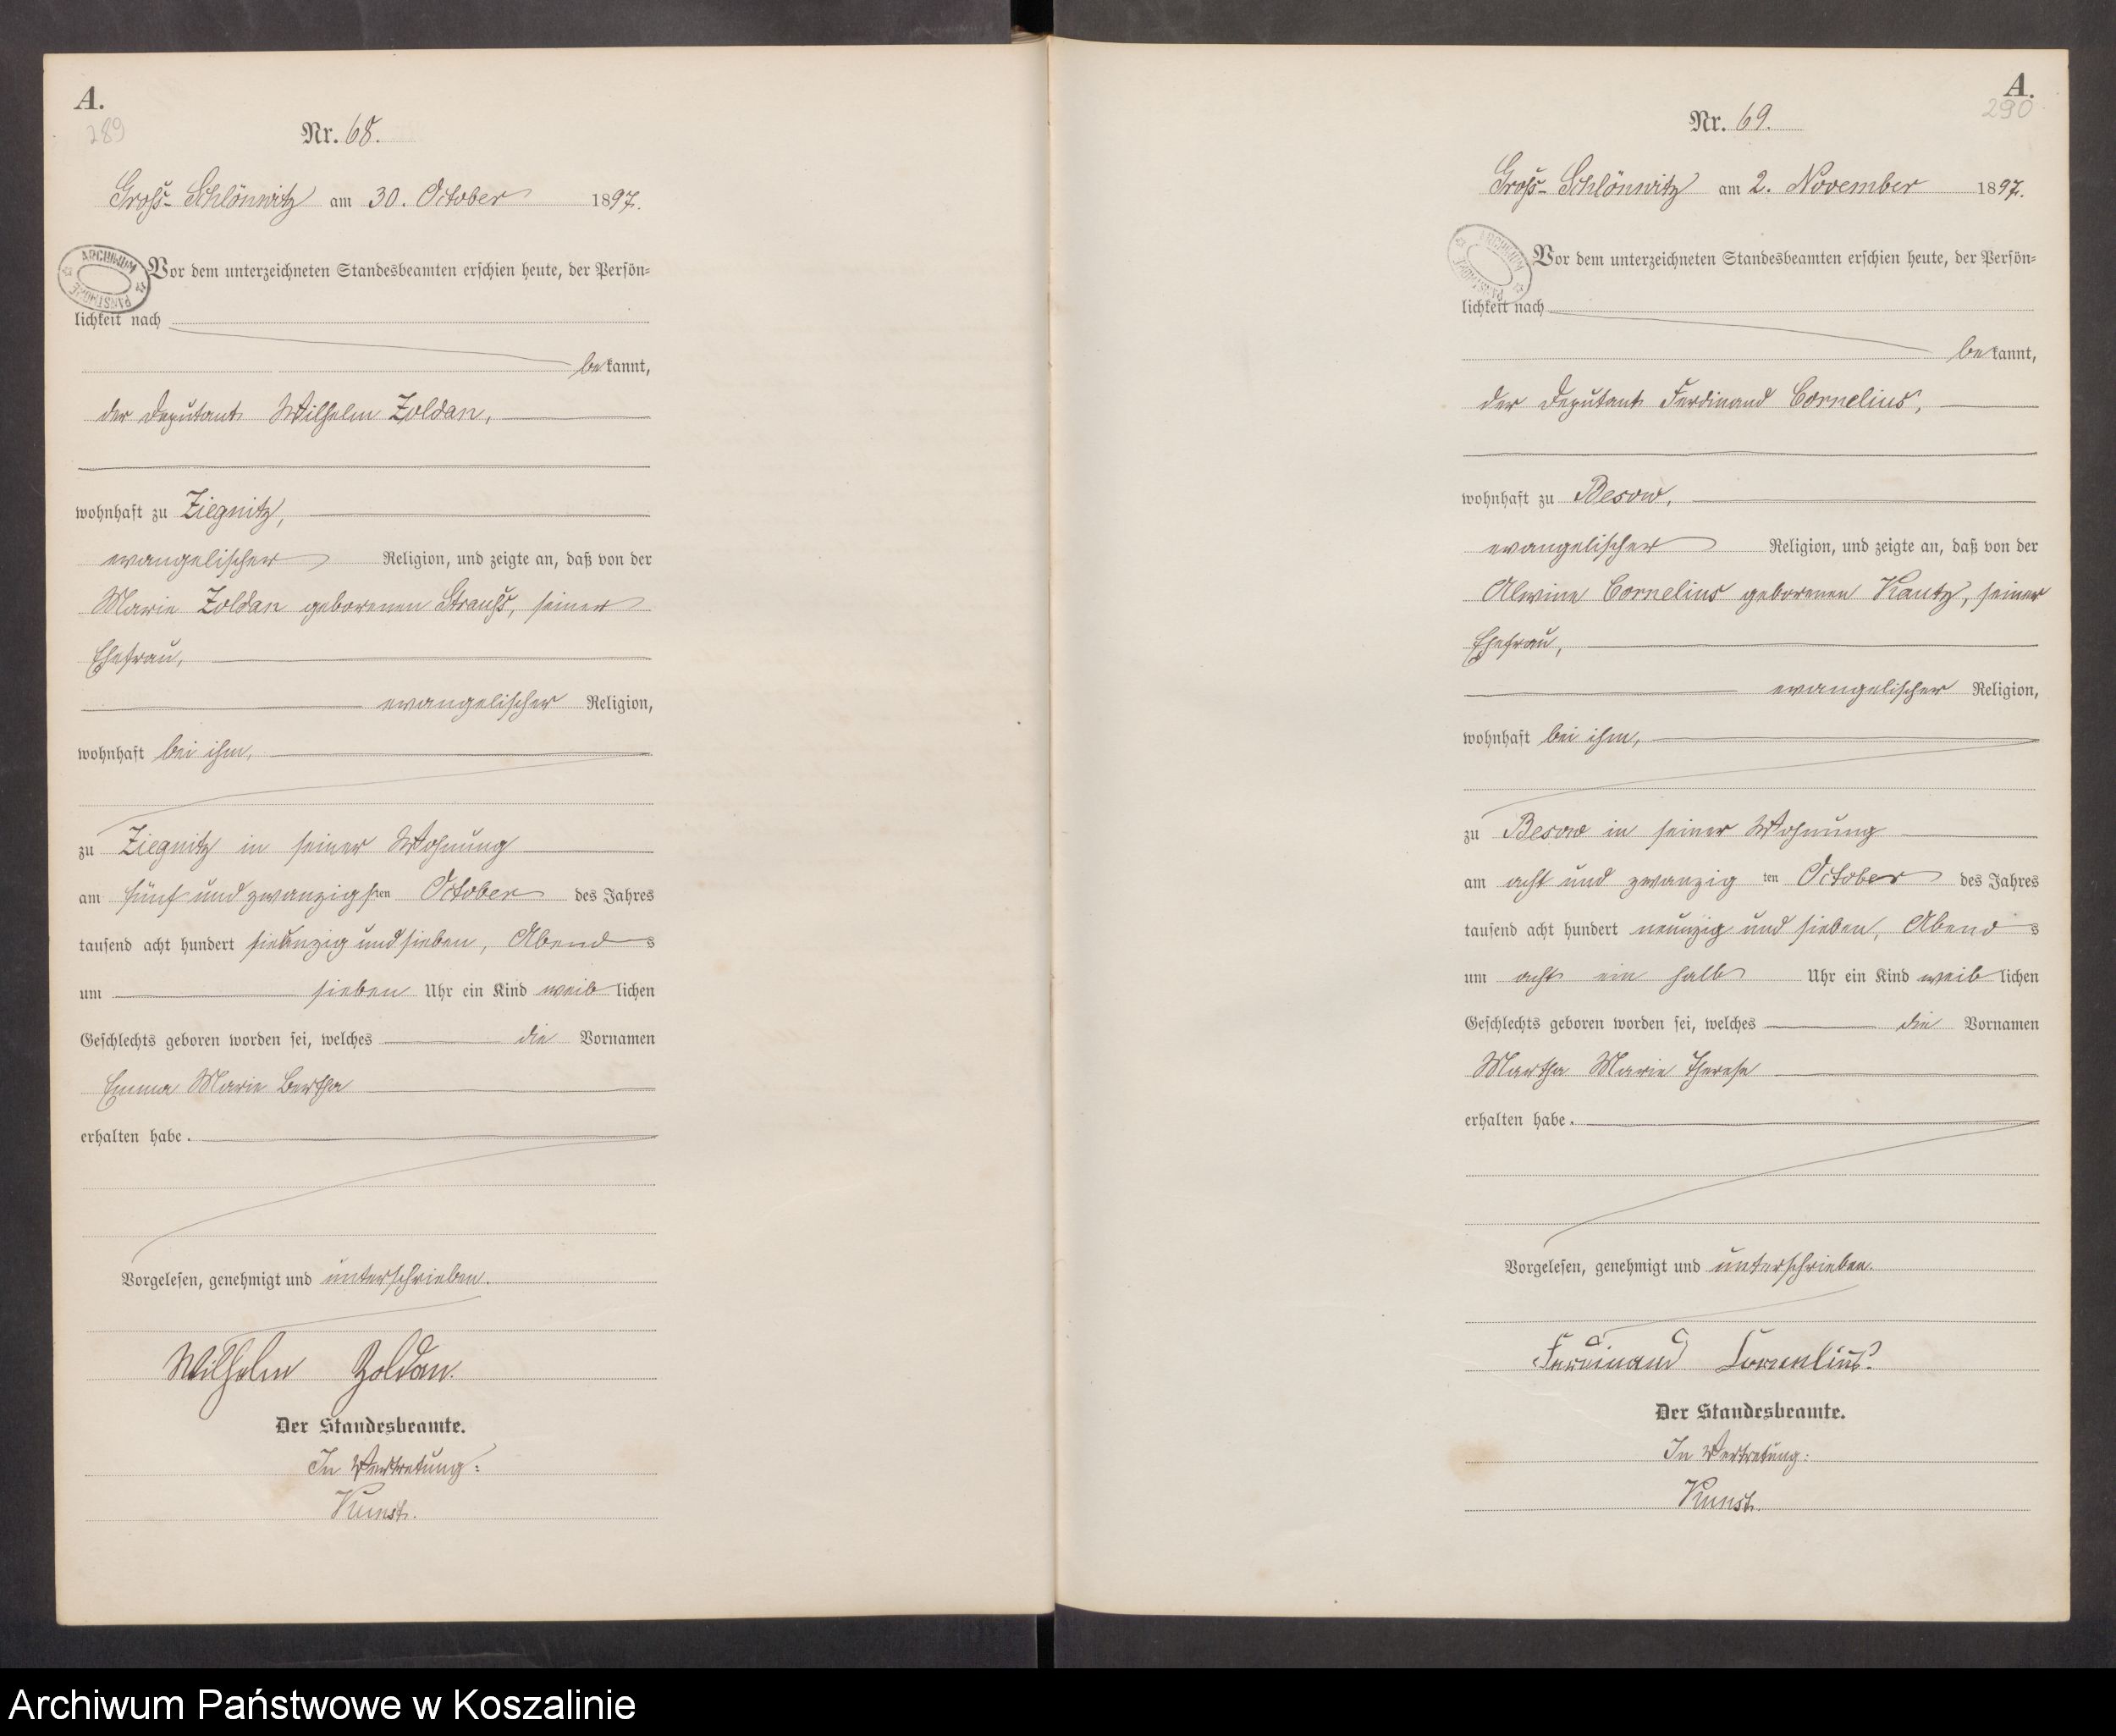 A.
289
Nr. 68.
Groß-Schlönwitz am 30. October 1897.
ARCHIWUM PAŃSTWOWE
Vor dem unterzeichneten Standesbeamten erschien heute, der Persön-
lichkeit nach
bekannt,
der Deputant Wilhelm Zoldan,
wohnhaft zu Ziegnitz,
evangelischer Religion, und zeigte an, daß von der
Marie Zoldan geborenen Strauß, seiner
Ehefrau,
evangelischer Religion,
wohnhaft bei ihm,
zu Ziegnitz in seiner Wohnung
am fünf und zwanzigsten October des Jahres
tausend acht hundert und sieben, Abends
um sieben Uhr ein Kind weiblichen
Geschlechts geboren worden sei, welches die Vornamen
Emma Marie Bertha
erhalten habe.
Vorgelesen, genehmigt und unterschrieben.
Wilhelm Zoldan.
Der Standesbeamte.
In Vertretung:
Kunst.
A.
290
Nr. 69.
Groß-Schlönwitz am 2. November 1897.
ARCHIWUM PAŃSTWOWE
Vor dem unterzeichneten Standesbeamten erschien heute, der Persön-
lichkeit nach
bekannt,
der Deputant Ferdinand Cornelius,
wohnhaft zu Besow,
evangelischer Religion, und zeigte an, daß von der
Alwine Cornelius geborenen Kautz, seiner
Ehefrau,
evangelischer Religion,
wohnhaft bei ihm,
zu Besow in seiner Wohnung
am acht und zwanzig ten October des Jahres
tausend acht hundert neunzig und sieben, Abends
um acht ein halb Uhr ein Kind weiblichen
Geschlechts geboren worden sei, welches die Vornamen
Martha Marie Therese
erhalten habe.
Vorgelesen, genehmigt und unterschrieben.
Ferdinand Cornelius.
Der Standesbeamte.
In Vertretung:
Kunst.
Archiwum Państwowe w Koszalinie